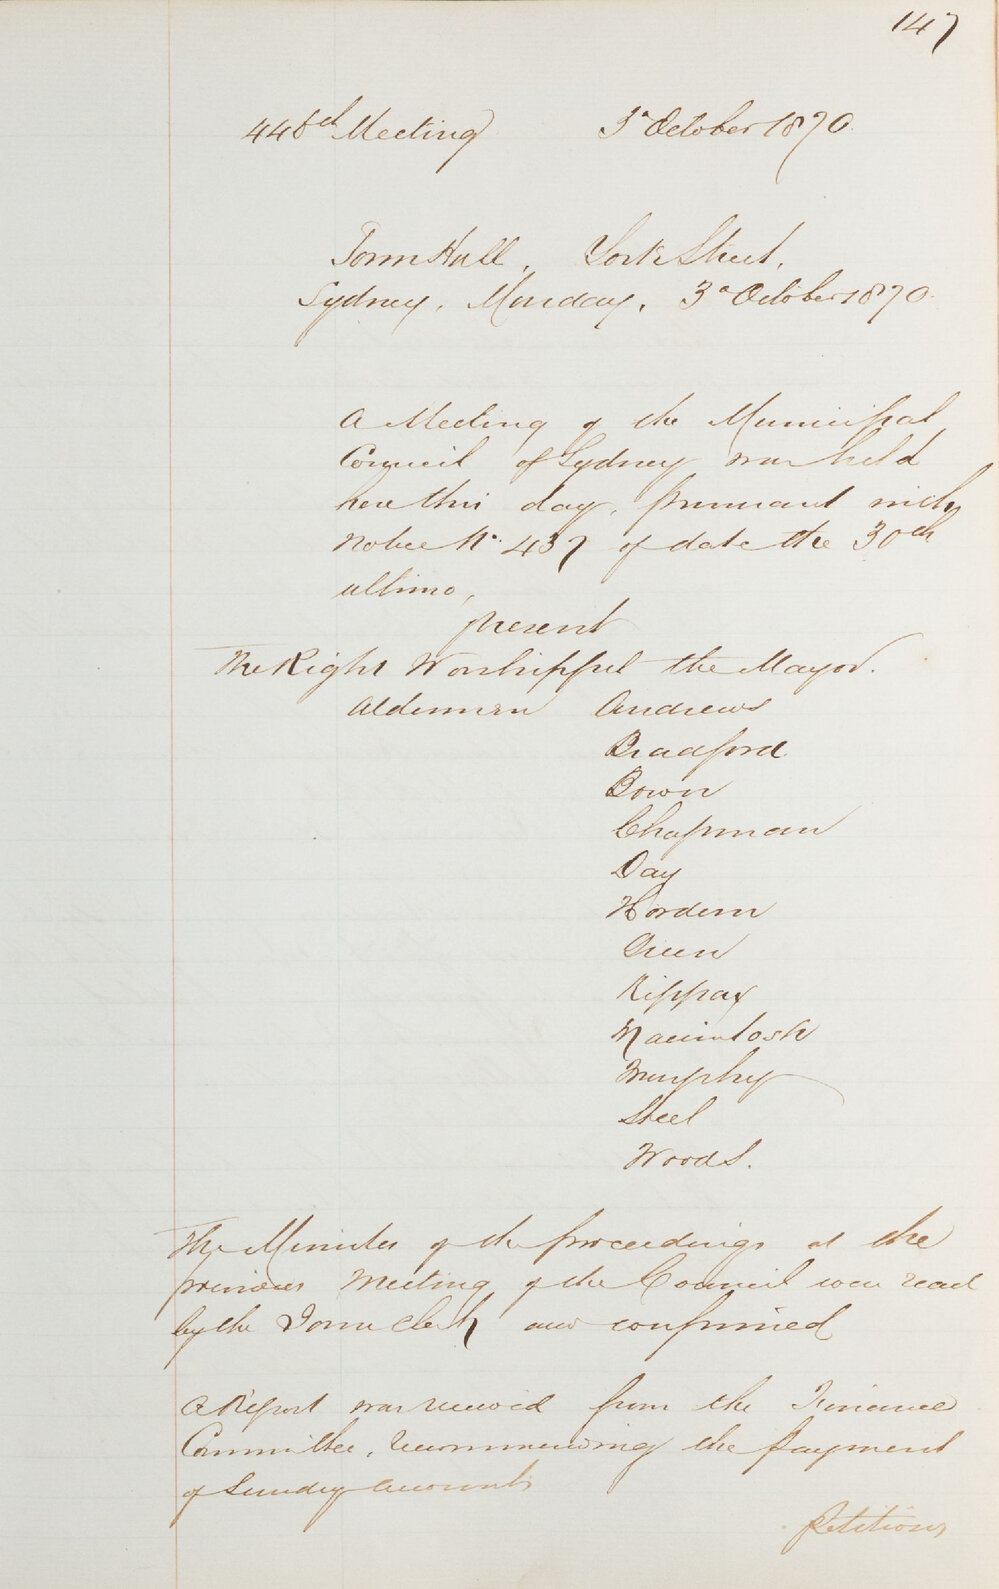 147
448th Meeting 3d October 1870
Town Hall, York Street,
Sydney, Monday, 3d October 1870.
A Meeting of the Municipal
Council of Sydney was held
here this day, pursuant with
Notice No. 437 of date the 30th
ultimo,
present
The Right Worshipful the Mayor.
Aldermen Andrews
Bradford
Bown
Chapman
Day
Hordern
Green
Kippax
Macintosh
Murphy
Steel
Woods.
The Minutes of the proceedings at the
previous Meeting of the Council were read
by the Town Clerk and confirmed
A Report was received from the Finance
Committee, recommending the payment
of Sundry accounts
Petitions